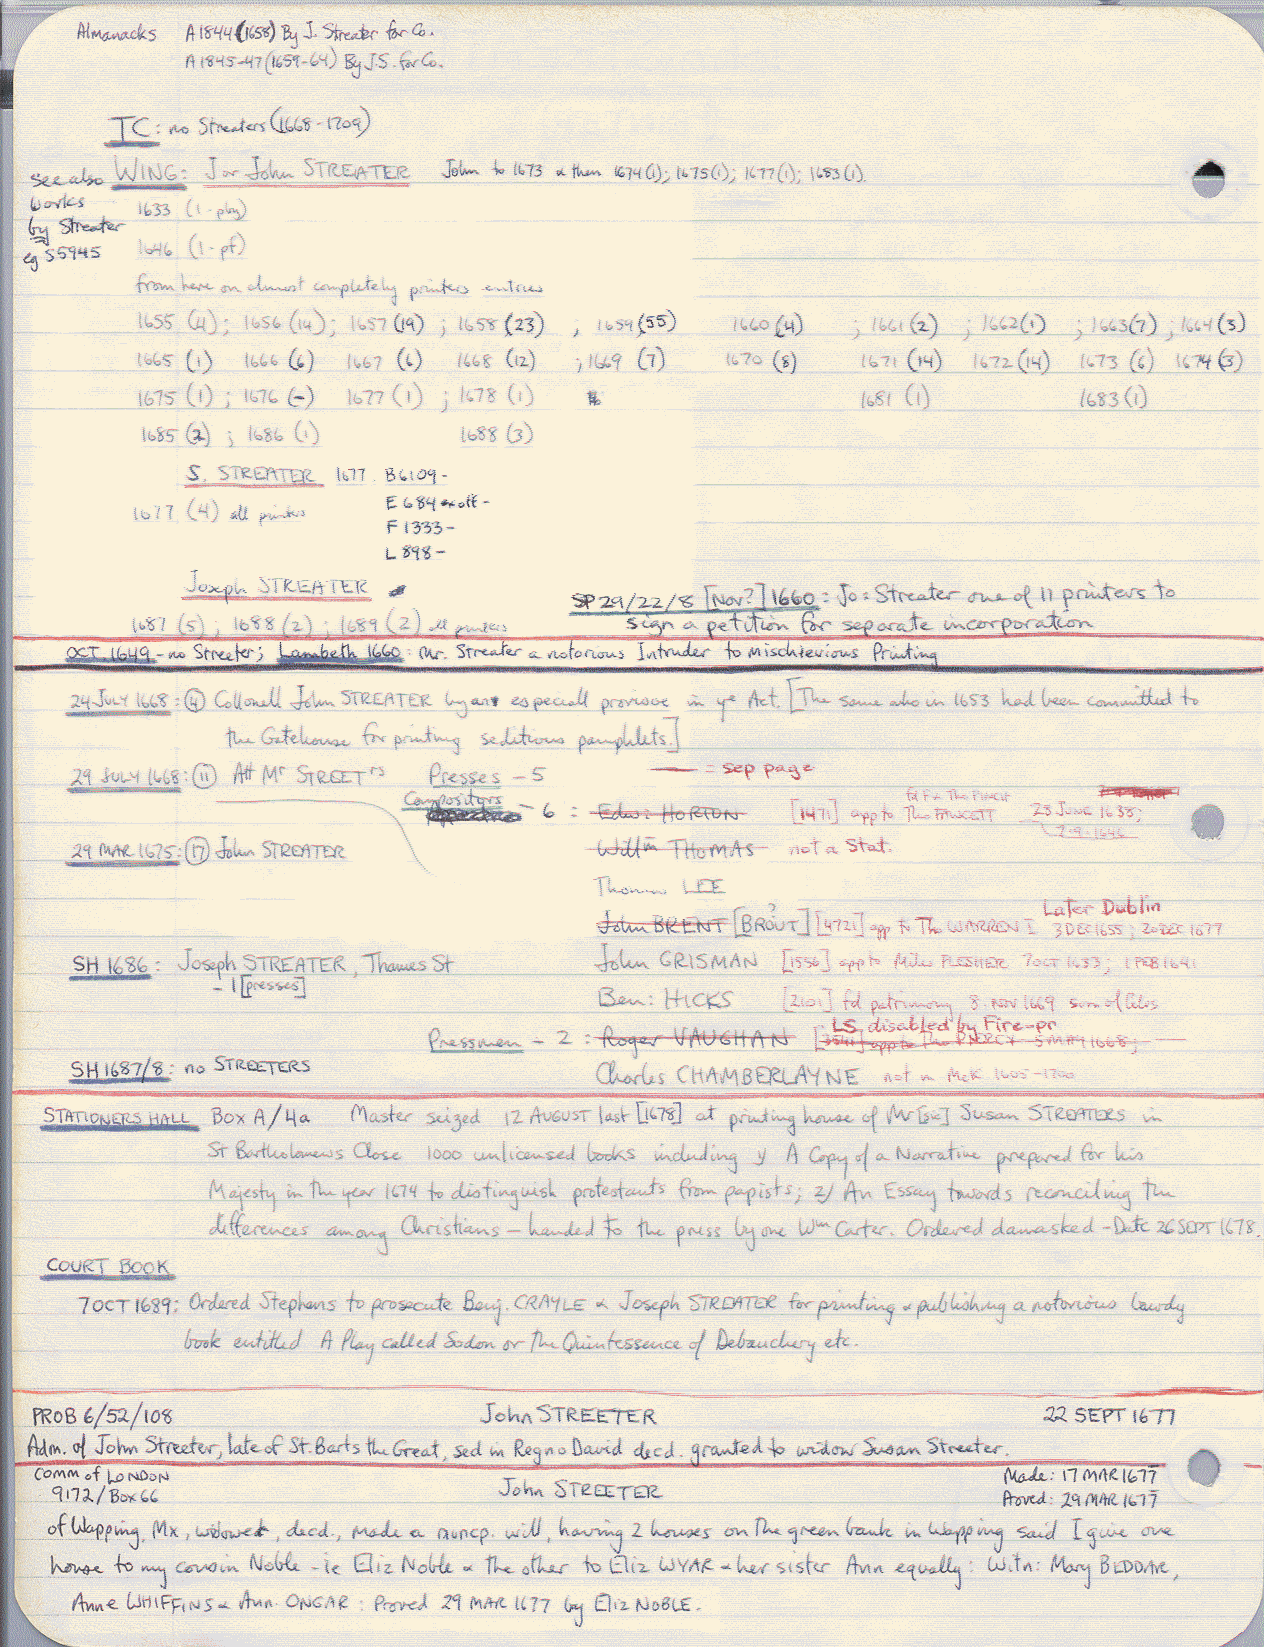 Almanacks A1844 (1658) By J. Streater for Co.
A1845-47 (1659-64) By J.S. for Co.
TC: no Streaters (1668-1709)
see also WING: J or John STREATER John to 1673 & then 1674(1); 1675(1); 1677(1); 1683(1).
works 1633 (1-play)
by Streater
eg S5945 1646 (1-pf)
from here on almost completely printers entries
1655 (4); 1656 (14); 1657 (19) ; 1658 (23) , 1659 (55) 1660 (4) ; 1661 (2) ; 1662 (1) ; 1663 (7) ; 1664 (3)
1665 (1) 1666 (6) 1667 (6) 1668 (12) ; 1669 (7) 1670 (8) 1671 (14) 1672 (14) 1673 (6) 1674 (3)
1675 (1) ; 1676 (-) 1677 (1) ; 1678 (1) 1681 (1) 1683 (1)
1685 (2) ; 1686 (1) 1688 (3)
S. STREATER 1677 B6109-
E684 ex off -
1677 (4) all printers
F1333-
L898-
Joseph STREATER
SP 29/22/8 [Nov?] 1660 = Jo = Streater one of 11 printers to
1687 (5) ; 1688 (2) ; 1689 (2) all printers sign a petition for separate incorporation
OCT. 1649 - no Streeter; Lambeth 1660: Mr. Streater a notorious Intruder to Mischievious Printing
24 JULY 1668: (4) Collonell John STREATER by an especiall provisoe in ye Act. [The same who in 1653 had been committed to
the Gatehouse for printing seditious pamphlets.]
29 JULY 1668: (11) Att Mr STREETrs Presses - 5 — = sep page
Compositers - 6 : Edw: HORTON [1471] app to Tho FAWCETT 28 JUNE 1638;
2.9.1646
29 MAR 1675: (17) John STREATER Willm THOMAS not a Stat.
Thomas LEE
Later Dublin
John BRENT [BROUT?] [4721] app to Tho WARREN I 3 DEC 1655; 20 DEC 1677
SH 1686: Joseph STREATER, Thames St John GRISMAN [1556] app to Miles FLESHER 7 OCT 1633; 1 FEB 1641
- 1 [presses]
Ben: HICKS [2101] fd patrimony 8. NOV 1669
LS, disabled by Fire-pr
Pressmen - 2 : Roger VAUGHAN [3541] app to Tho PIERCY 5 MAY 1668;
SH 1687/8: no STREETERS Charles CHAMBERLAYNE not in McK 1605-1700
STATIONERS HALL Box A/4a Master seized 12 AUGUST last [1678] at printing house of Mr [sic] Susan STREATERS in
St Bartholomews Close 1000 unlicensed books including 1/ A Copy of a Narrative prepared for his
Majesty in the year 1674 to distinguish protestants from papists; 2/ An Essay towards reconciling the
differences among Christians - handed to the press by one Wm Carter. Ordered damasked - Date 26 SEPT 1678.
COURT BOOK
7 OCT 1689: Ordered Stephens to prosecute Benj. CRAYLE & Joseph STREATER for printing & publishing a notorious bawdy
book entitled A Play called Sodom or the Quintessence of Debauchery etc.
PROB 6/52/108 John STREETER 22 SEPT 1677
Adm. of John Streeter, late of St. Barts the Great, sed in Regno David decd. granted to widow Susan Streeter.
Comm of LONDON Made: 17 MAR 1677
9172/Box 66 John STREETER Proved: 29 MAR 1677
of Wapping, Mx, widower, decd., made a nuncp. will, having 2 houses on the green bank in Wapping said I give one
house to my cousin Noble - ie Eliz Noble & the other to Eliz WYAR & her sister Ann equally: Witn: Mary BEDDAR,
Anne WHIFFINS & Ann. ONGAR: Proved 29 MAR 1677 by Eliz NOBLE.